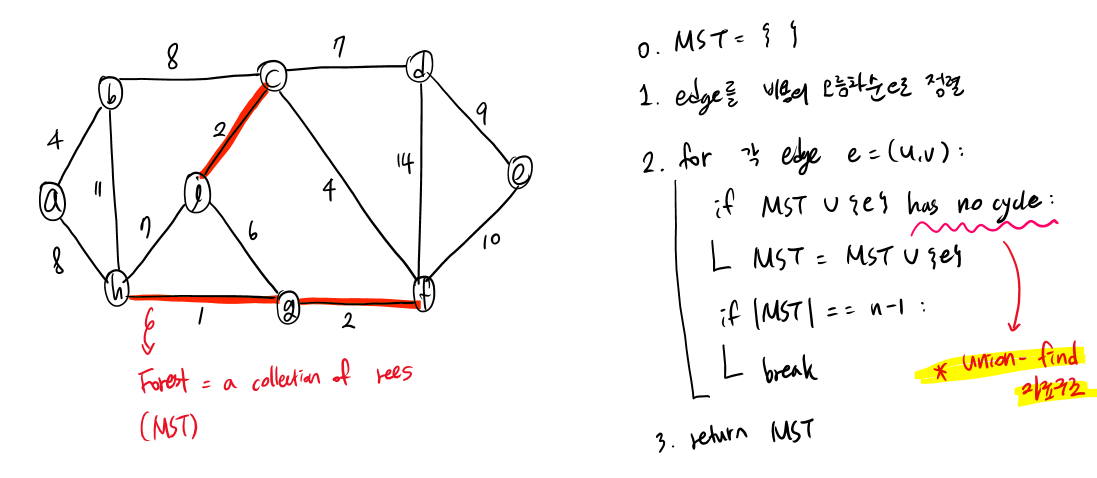 8
7
b
c
d
4
2
9
11
14
a
i
4
e
7
6
8
10
h
g
f
1
2
Forest = a collection of rees
(MST)
0. MST = { }
1. edge를 비용의 오름차순으로 정렬
2. for 각 edge e = (u,v) :
if MST ∪ {e} has no cycle :
MST = MST ∪ {e}
if |MST| == n-1 :
break
* union-find
자료구조
3. return MST